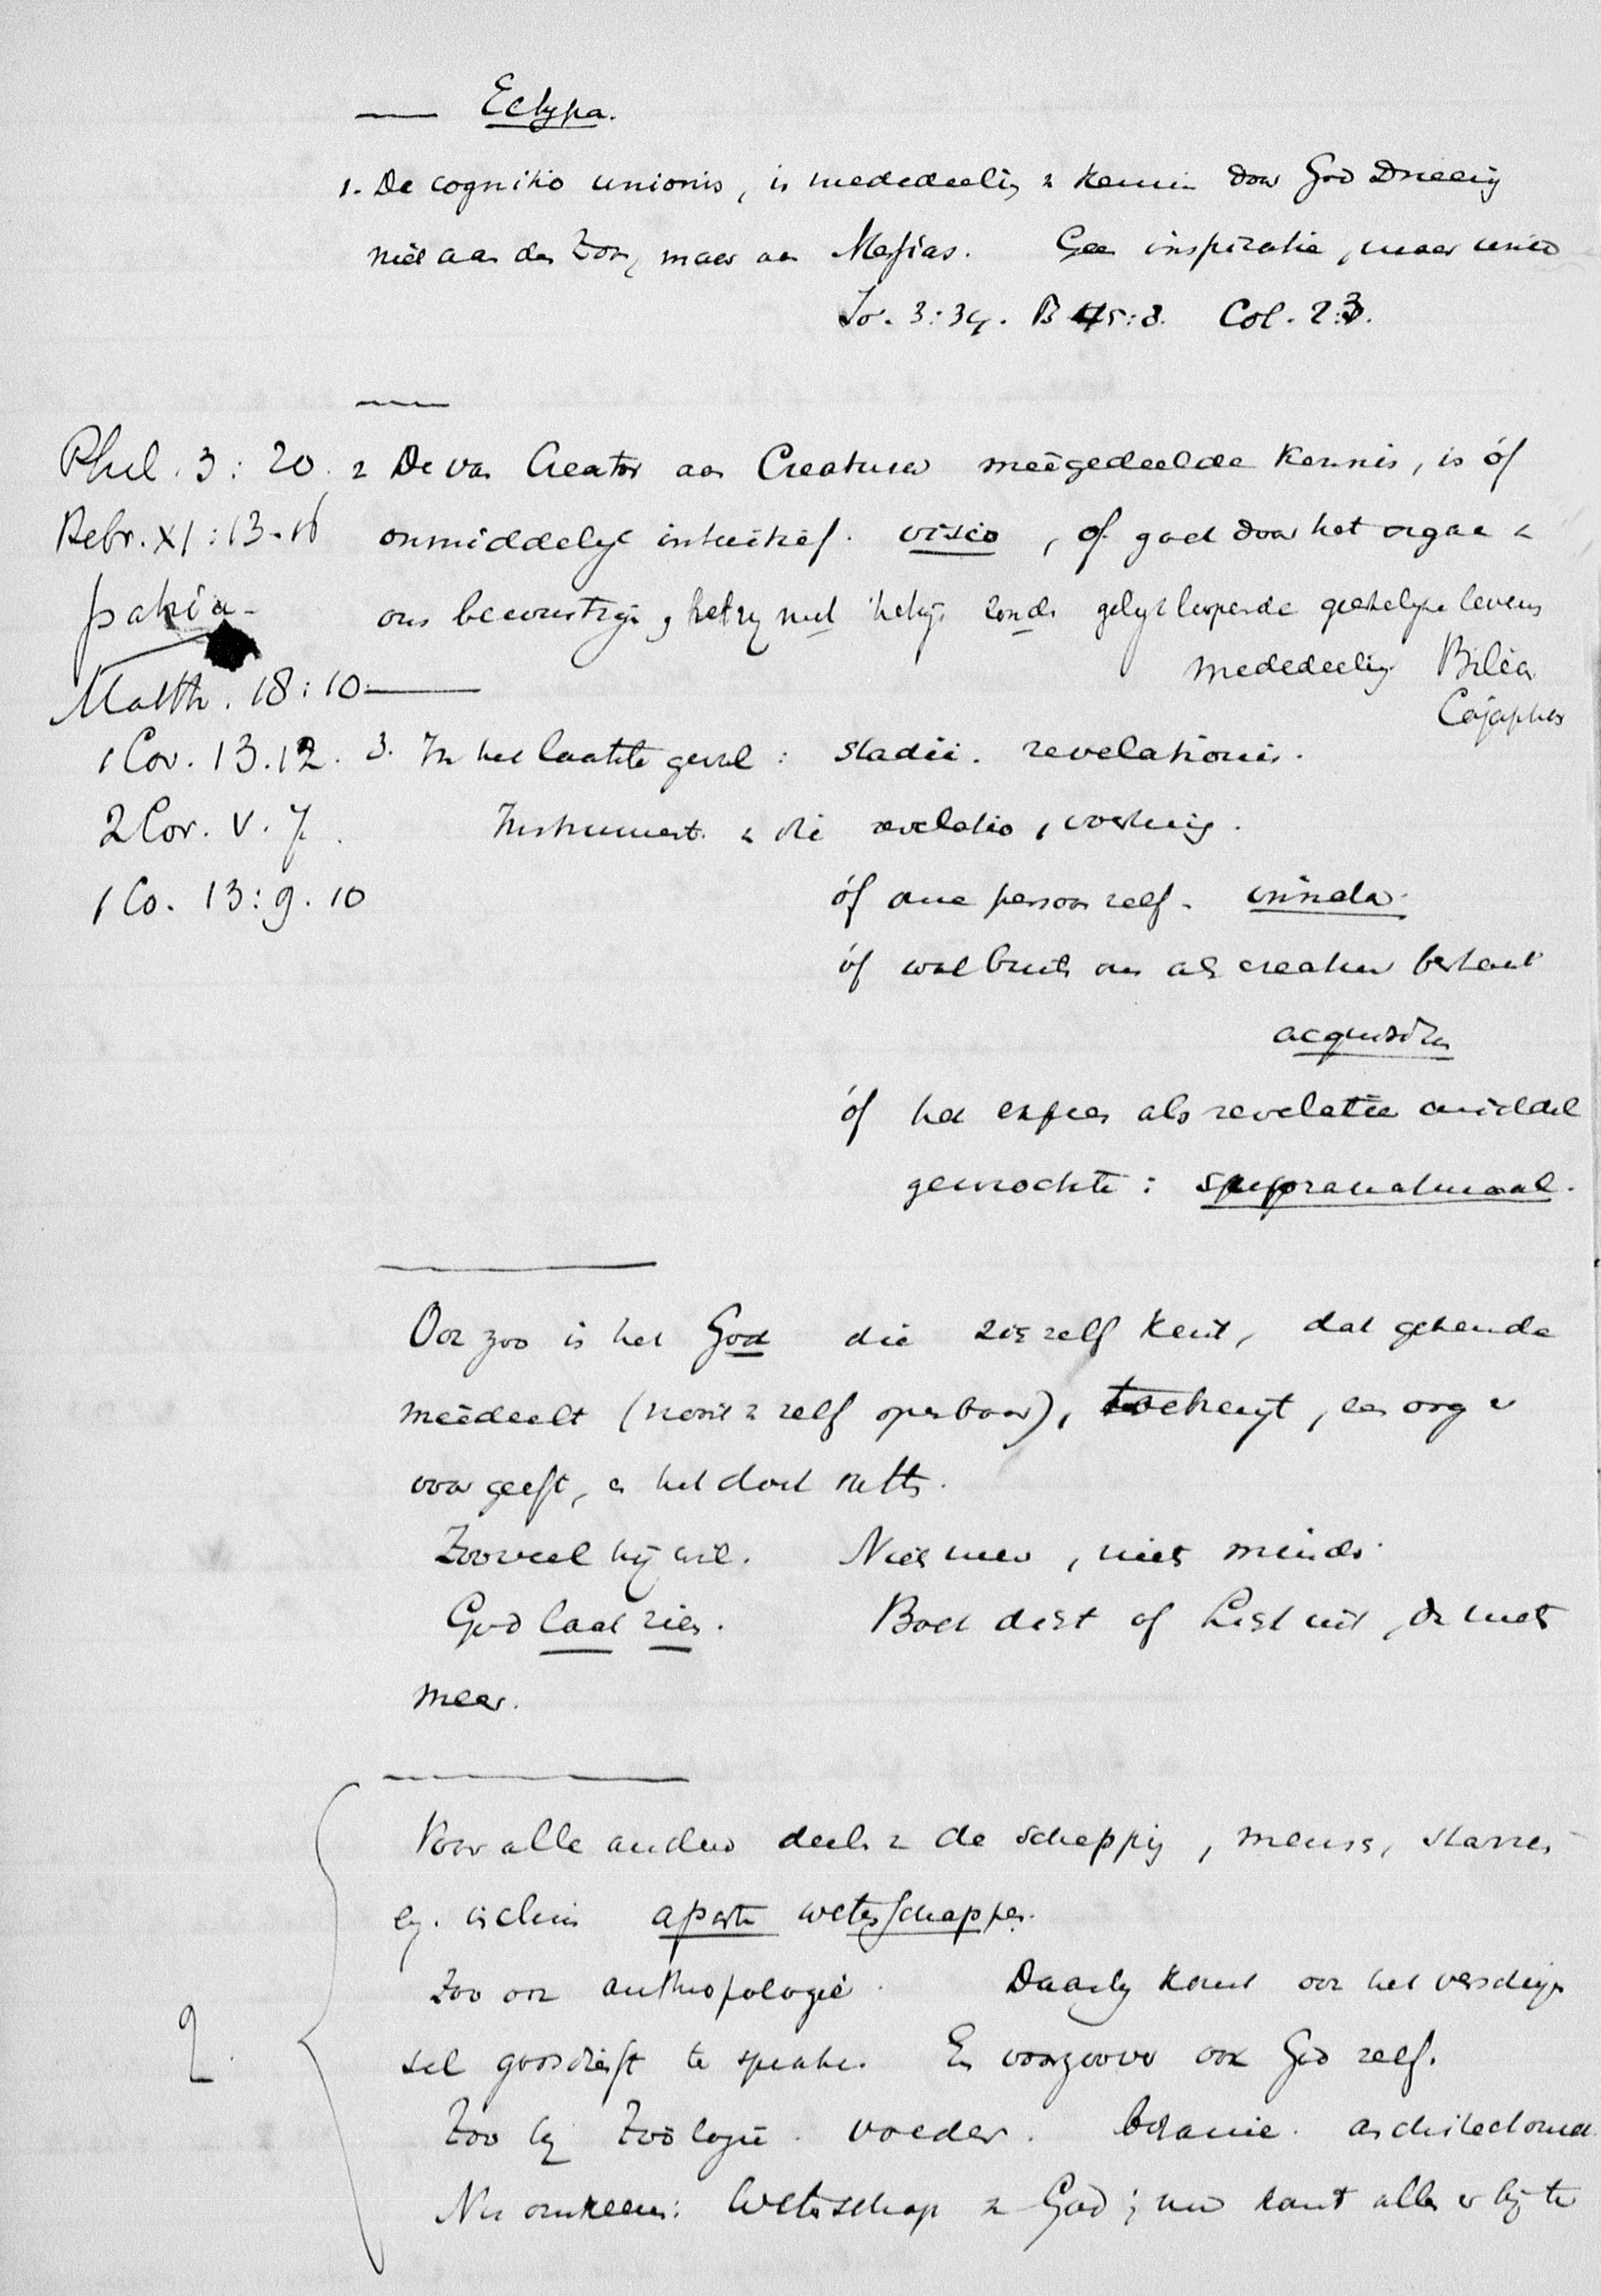 Ectypa.
1. De cognitio unionis, is mededeelig v kennis door God Drieeig
niet aan den Zoon, maar aan Messias. Geen inspiratie, maar unio
Jo. 3:34. Ps 45:8. Col. 2:3.
Phil. 3:20. 2 De van Creator aan Creatuur meêgedeelde Kennis, is óf
Hebr. XI:13-16 onmiddelyk intuitief. visio, óf gaat door het orgaan v
patria ons bewustzijn, hetzij met hetzij zonder gelijkloopende geestelijke levens
mededeelig Bileam
Cajaphas
Matth. 18:10
1 Cor. 13.12. 3. In het laatste geval: stadii. revelationis.
2 Cor. V. 7. Instrument v die revelatio, voertuig.
1 Co. 13:9.10 óf onze persoon zelf. innata.
óf wat buiten ons als creatuur bestaat
acquisita
óf het expres als revelatie middel
gewrochte: supranaturaal.
Ook zoo is het God die zich zelf kent, dat gekende
meêdeelt (nooit v zelf openbaar), toebrengt, een org v
voor geeft, en het doel
Zooveel hij wil. Niet meer, niet minder.
God laat zien. Boek dicht of Licht uit, en niets
meer.
Voor alle andere deelen v de schepping, mensch, starren
aparte wetenschappen.
Zoo ook anthropologie. Daarbij komt ook het
sel godsdienst te spreken. En voorzoover ook God zelf.
2. Zoo bij Zoölogie. voeder. botanie. architectonie
Nu omkeeren: Wetenschap v God; nu komt alles er bij te